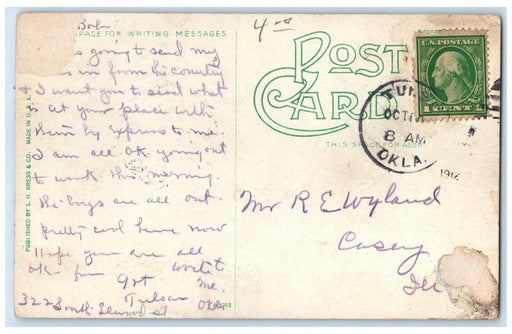 Bob
SPACE FOR WRITING MESSAGES
4 00
POST CARD
THIS SPACE FOR ADDRESS
U.S. POSTAGE
1 CENT 1
OCT
8 AM
OKLA.
1912
going to send my
in from the country
& I want you to send what
is at your place with
them by express to me.
I am all OK going out
to work this morning.
The boys are all out.
pretty cool here now
Hope you are all
OK. from write
me.
Tulsa Okla
322 South st
Mr R E Wyland
Casey
Ill
PUBLISHED BY S. H. KRESS & CO. MADE IN U.S.A.